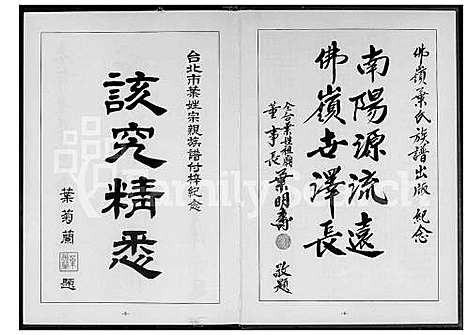 佛嶺葉氏族譜出版紀念
南陽源流遠
佛嶺世澤長
全台葉姓祖廟
董事長葉明壽
敬題
台北市葉姓宗親族譜付梓紀念
該究精悉
葉菊蘭
題
FamilySearch